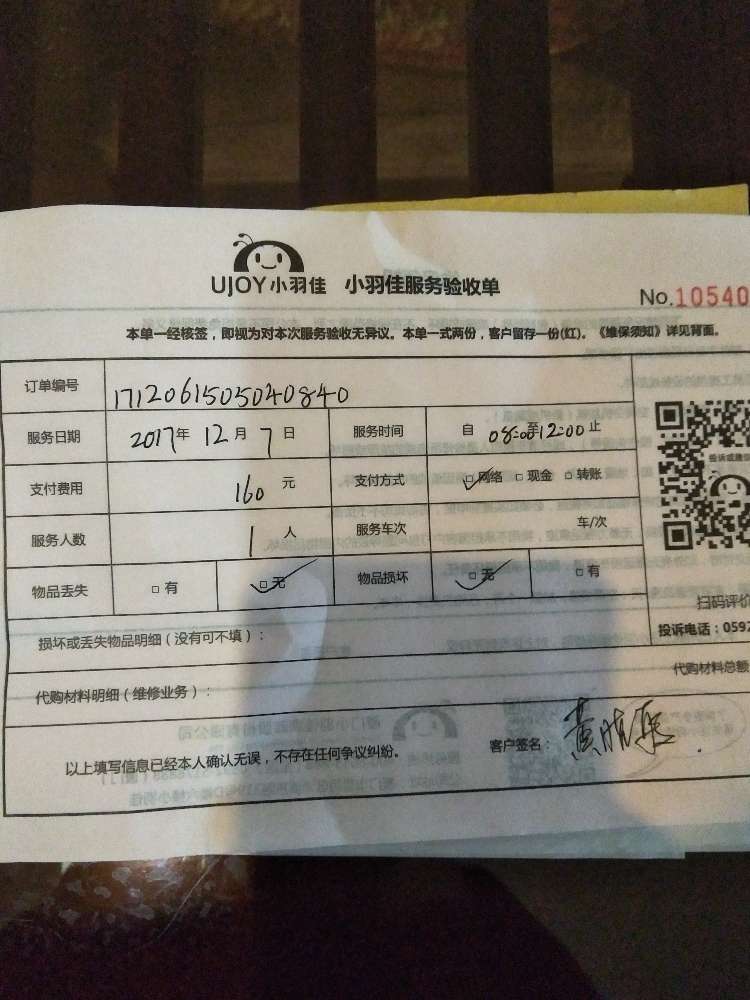 UJOY小羽佳 小羽佳服务验收单
No.10540
本单一经核签，即视为对本次服务验收无异议。本单一式两份，客户留存一份(红)。《维保须知》详见背面。
订单编号 1712061505040840
服务日期 2017年 12月 7日 服务时间 自 08:00至12:00止
支付费用 160元 支付方式 □网络 □现金 □转账
服务人数 1人 服务车次 车/次
物品丢失 □有 □无 物品损坏 □无 □有
投诉或建议
扫码评价
损坏或丢失物品明细（没有可不填）：
投诉电话：0592
代购材料明细（维修业务）：
代购材料总额
以上填写信息已经本人确认无误，不存在任何争议纠纷。 客户签名：黄